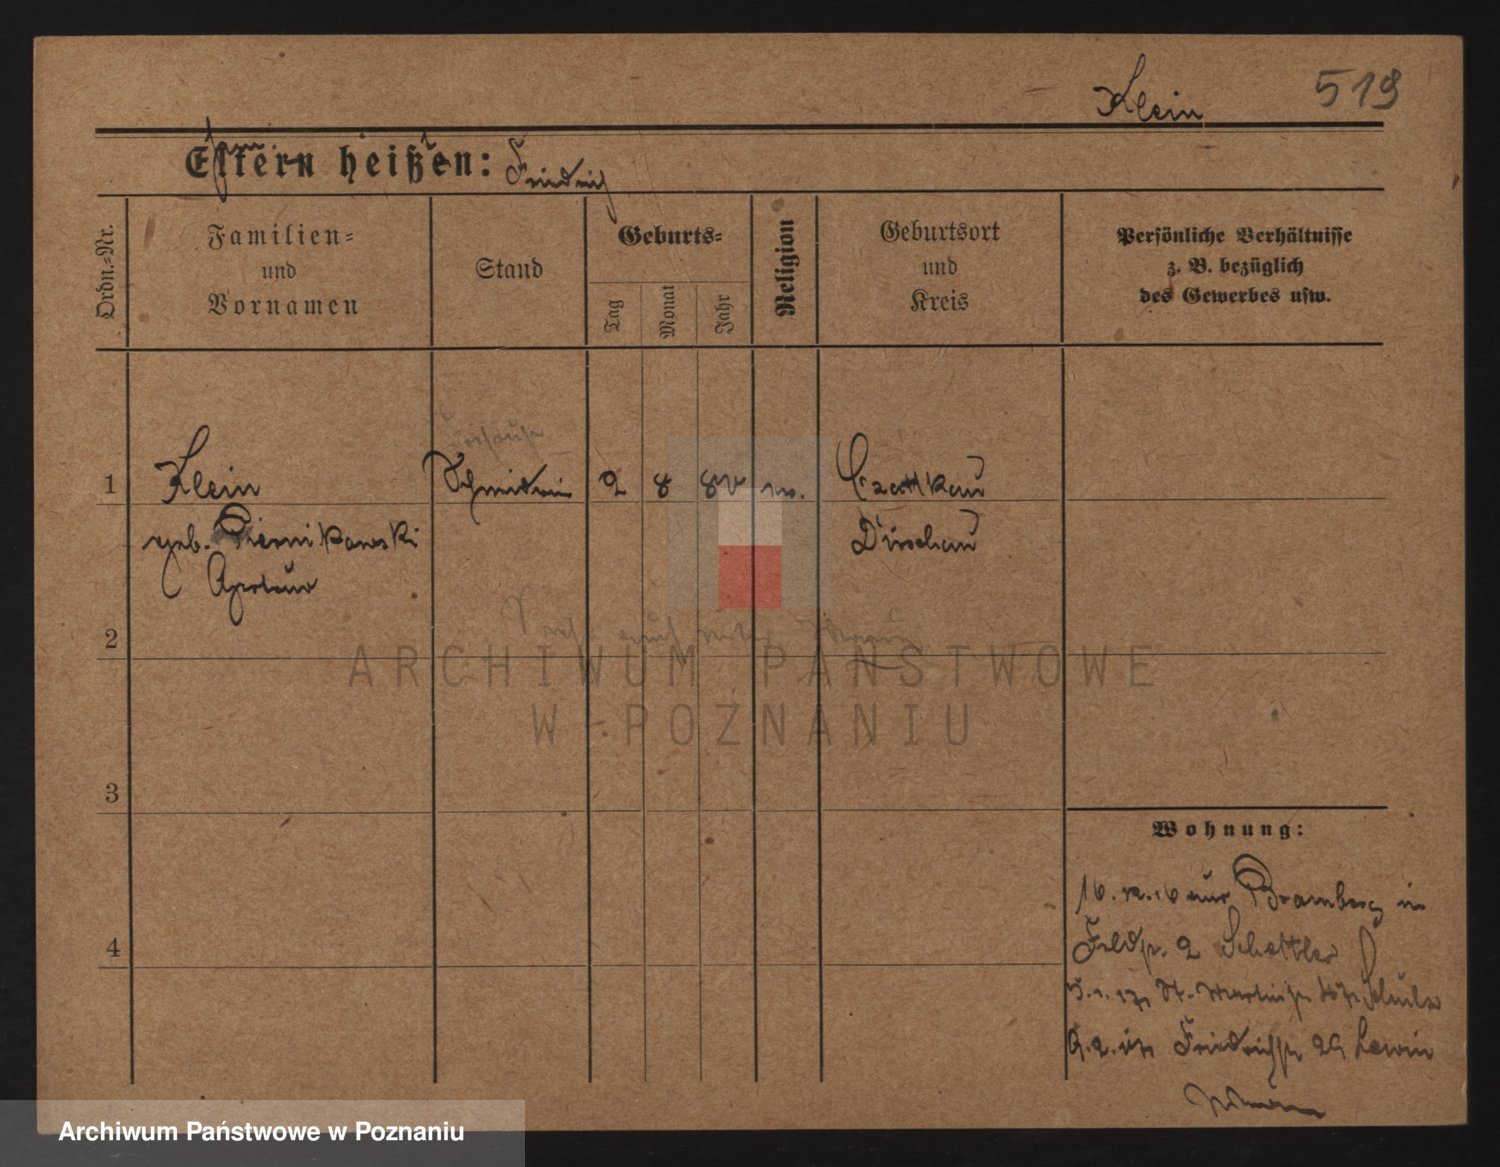 Klein 519
Eltern heißen: Friedrich
Ordn.=Nr.
Familien=
und
Vornamen
Stand
Geburts=
Tag
Monat
Jahr
Religion
Geburtsort
und
Kreis
Persönliche Verhältnisse
z. B. bezüglich
des Gewerbes usw.
1 Klein 2 8 Czattkau
geb. Piernikowski Dirschau
2
ARCHIWUM PAŃSTWOWE
W POZNANIU
3
Wohnung:
16. 12. 16 aus Bromberg in
4
Feldstr. 2 Schettler
St. Martinstr.
Friedrichstr. 29 Lewin
Archiwum Państwowe w Poznaniu